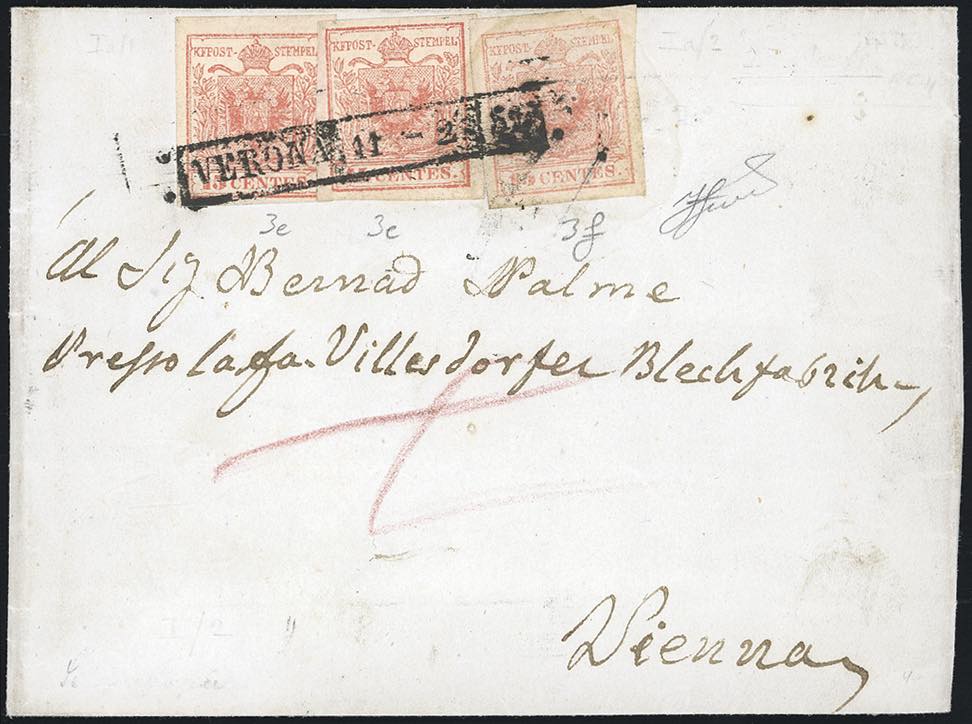 KKPOST- STEMPEL KKPOST- STEMPEL KKPOST- STEMPEL
VERONA 11 - 2
15 CENTES. 15 CENTES. 15 CENTES.
3e 3e 3f
Al Sig Bernad Palme
Presso la fa. Villesdorfer Blechfabrik
Vienna
I/2